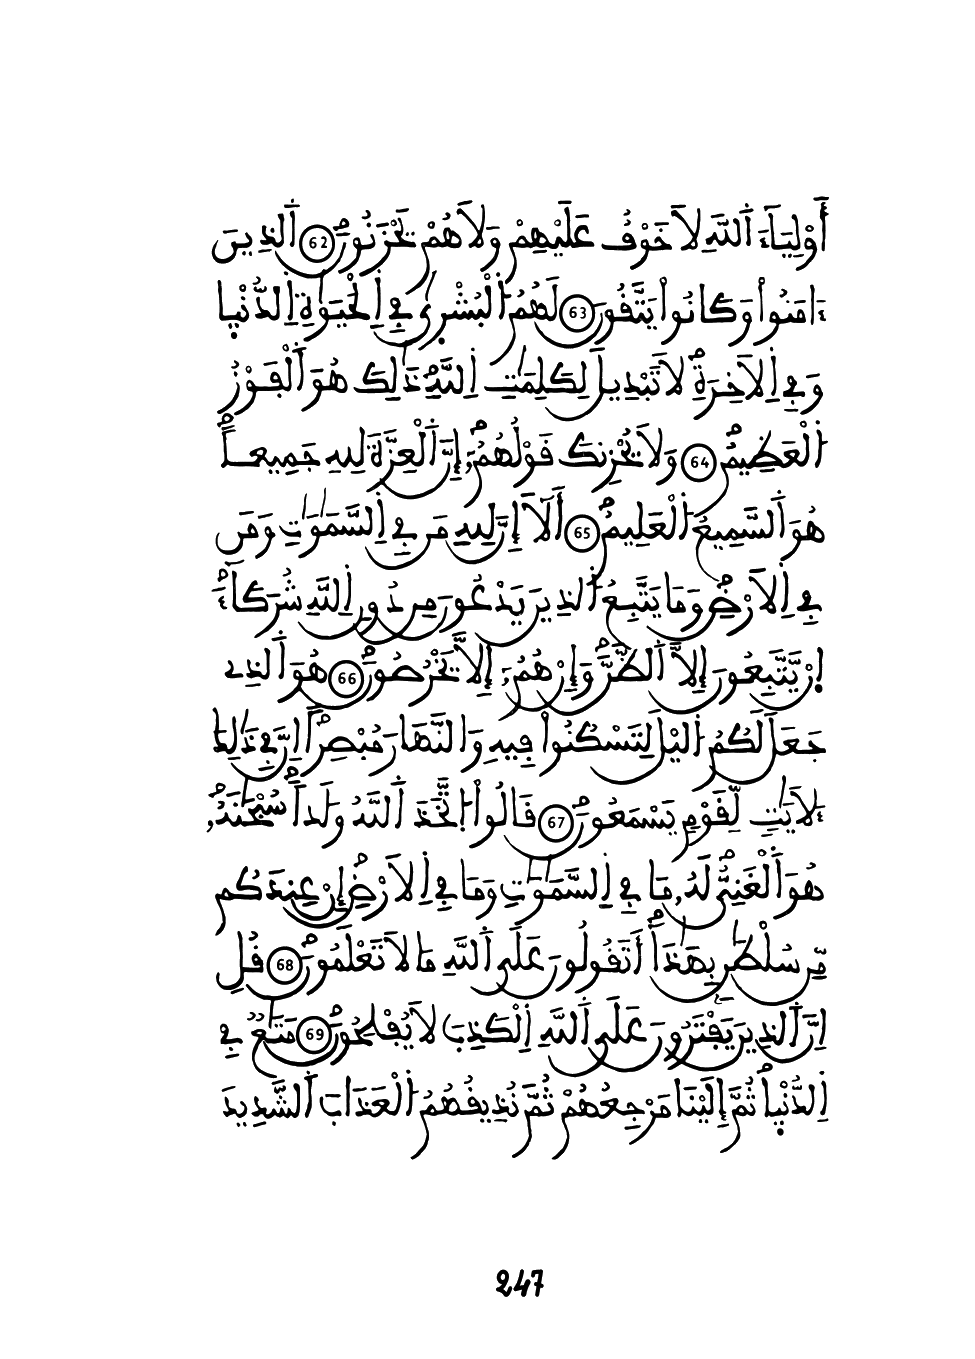 أَوْلِيَآءَ اَ۬للَّهِ لَا خَوْفٌ عَلَيْهِمْ وَلَا هُمْ يَحْزَنُونَۖ 62 اَ۬لذِينَ
ءَامَنُواْ وَكَانُواْ يَتَّقُونَ 63 لَهُمُ اُ۬لْبُشْر۪ىٰ فِے اِ۬لْحَيَوٰةِ اِ۬لدُّنْي۪ا
وَفِے اِ۬لَاخِرَةِۖ لَا تَبْدِيلَ لِكَلِمَٰتِ اِ۬للَّهِۖ ذَٰلِكَ هُوَ اَ۬لْفَوْزُ
اُ۬لْعَظِيمُۖ 64 وَلَا يُحْزِنكَ قَوْلُهُمُۥٓۖ إِنَّ اَ۬لْعِزَّةَ لِلهِ جَمِيعاًۖ
هُوَ اَ۬لسَّمِيعُ اُ۬لْعَلِيمُۖ 65 أَلَآ إِنَّ لِلهِ مَن فِے اِ۬لسَّمَٰوَٰتِ وَمَن
فِے اِ۬لَارْضِۖ وَمَا يَتَّبِعُ اُ۬لذِينَ يَدْعُونَ مِن دُونِ اِ۬للَّهِ شُرَكَآءَۖ
اِ۪نْ يَّتَّبِعُونَ إِلَّا اَ۬لظَّنَّۖ وَإِنْ هُمُۥٓ إِلَّا يَخْرُصُونَۖ 66 هُوَ اَ۬لذِے
جَعَلَ لَكُمُ اُ۬ليْلَ لِتَسْكُنُواْ فِيهِ وَالنَّهَارَ مُبْصِراًۖ اِنَّ فِے ذَٰلِكَ
ءَلَايَٰتٖ لِّقَوْمٖ يَسْمَعُونَۖ 67 قَالُواْ اُ۪تَّخَذَ اَ۬للَّهُ وَلَداًۖ سُبْحَٰنَهُۥۖ
هُوَ اَ۬لْغَنِيُّۖ لَهُۥ مَا فِے اِ۬لسَّمَٰوَٰتِ وَمَا فِے اِ۬لَارْضِۖ إِنْ عِندَكُم
مِّن سُلْطَٰنِۢ بِهَٰذَآۖ أَتَقُولُونَ عَلَى اَ۬للَّهِ مَا لَا تَعْلَمُونَۖ 68 قُلِ
اِنَّ اَ۬لذِينَ يَفْتَرُونَ عَلَى اَ۬للَّهِ اِ۬لْكَذِبَ لَا يُفْلِحُونَۖ 69 مَتَٰعٞ فِے
اِ۬لدُّنْي۪اۖ ثُمَّ إِلَيْنَا مَرْجِعُهُمْ ثُمَّ نُذِيقُهُمُ اُ۬لْعَذَابَ اَ۬لشَّدِيدَ
247